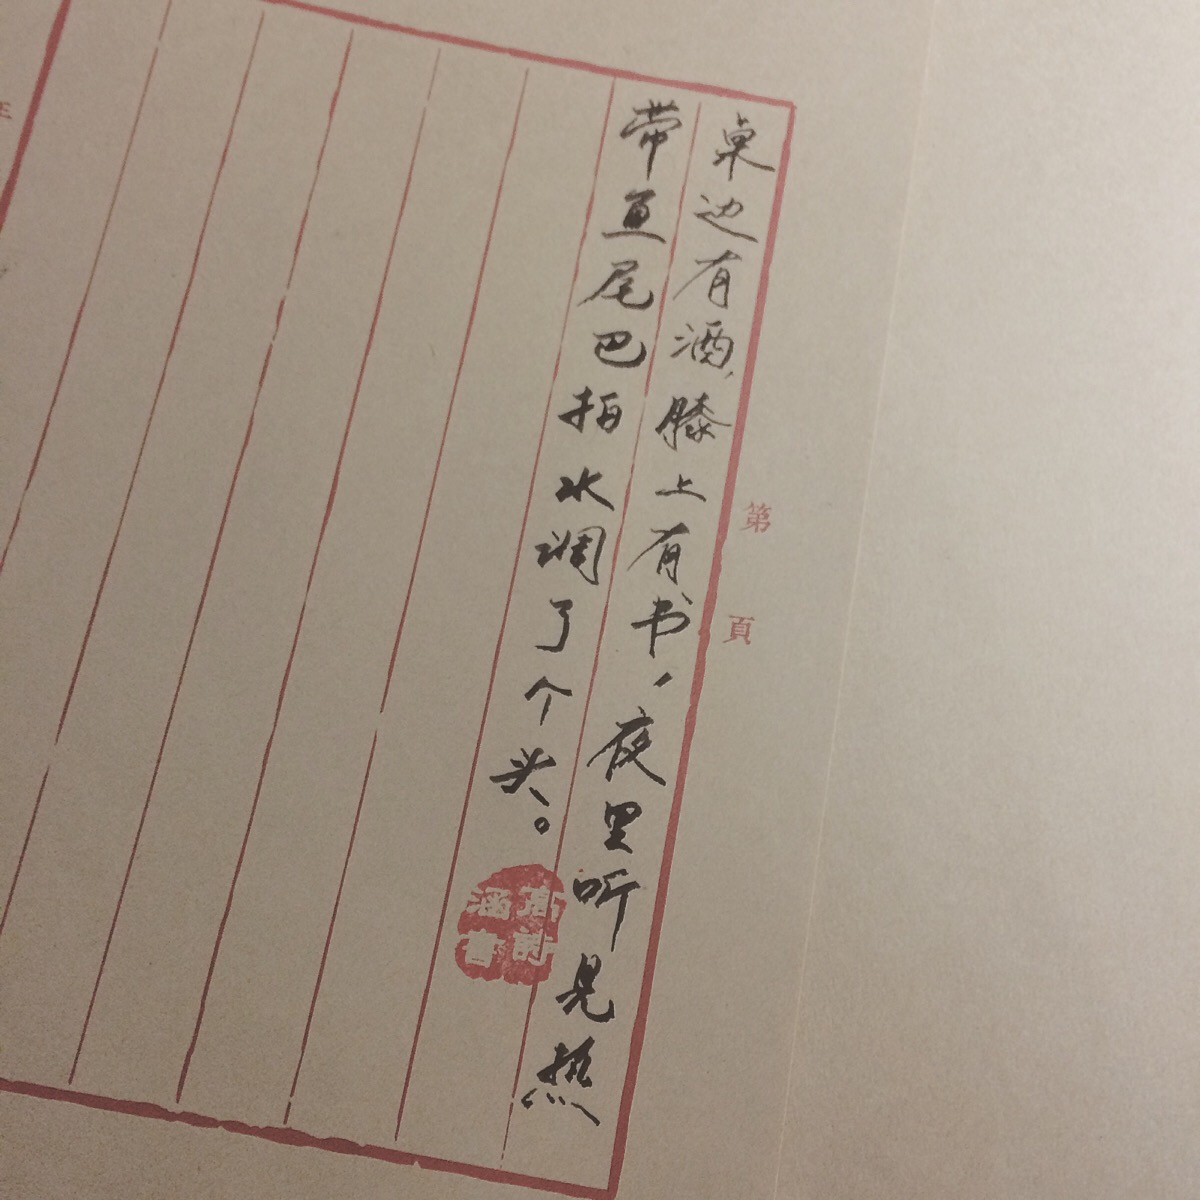 桌边有酒，膝上有书，夜里听见热
带鱼尾巴拍水调了个头。
第 頁
高詩
涵書